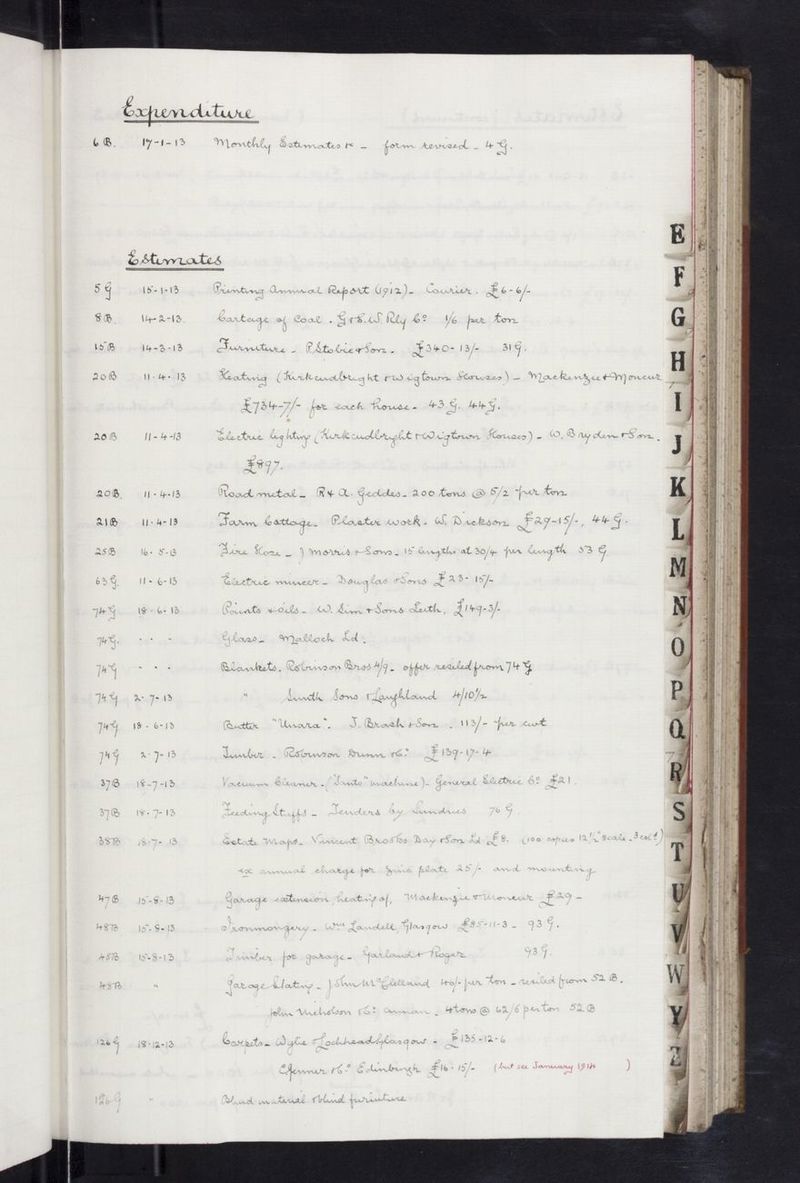 Expenditure
6 B. 17-1-13 Monthly Estimates &c - form revised - 4 G.
Estimates
5 G 15-1-13 Printing Annual Report (1912) - Courier. £6-6/-
8 B. 14-2-13. Cartage of Coal. G & S.W Rly Co 1/6 per ton
15 B 14-3-13 Furniture - P. Stobie & Son. £340-13/- 31 G.
20 B 11-4-13 Heating (Kirkcudbright & Wigtown Houses) - Mackenzie & Moncur
£734-7/- for each house - 43 G. 44 G.
20 B 11-4-13 Electric lighting (Kirkcudbright & Wigtown Houses) - W. Bryden & Son.
£897.
20 B. 11-4-13 Road metal - R & A. Geddes - 200 tons @ 5/2 per ton
21 B 11-4-13 Farm Cottage. Plaster work. W. Dickson £29-15/-, 44 G.
25 B 16-5-13 Fire Hose - J Morris & Sons - 15 lengths at 30/4 per length 53 G
63 G. 11-6-13 Electric mincer - Douglas & Sons £23-15/-
74 G 18-6-13 Paints & oils - W. Sim & Sons Leith, £149-3/-
74 G. - - - Glass - Malloch Ld.
74 G - - - Blankets. Robinson Bros 4/9 - offer resiled from 74 G
74 G 2-7-13 " Smith Sons & Laughland 4/10½
74 G 18-6-13 Butter "Unara". J. Brash & Son. 113/- per cwt
74 G 2-7-13 Timber. Robinson Dunn & Co £139-17-4
37 B 18-7-13 Vacuum Cleaner. ("Santo" machine) - General Electric Co £21.
37 B 18-7-13 Feeding Stuffs - Tenders by Sundries 76 G.
38 B 18-7-13 Estate Maps - Vincent Brooks Day & Son Ld £8. (100 copies 12½" scale - 3 cols)
annual charge for zinc plate 25/- and mounting
47 B 15-8-13 Garage extension, heating of, Mackenzie & Moncur £29-
48 B 15-8-13 Ironmongery - Wm Landell, Glasgow £85-11-3 - 93 G.
48 B 15-8-13 Timber for garage - Garland & Roger 93 G.
48 B " Garage Slating - John McClelland 40/- per ton - resiled from 52 B.
John Nicholson & Co Annan. 4 tons @ 62/6 per ton 52 B
126 G 18-12-13 Carpets - Wylie & Lochhead Glasgow - £135-12-6
C Jenner & Co Edinburgh £16-15/- (but see January 1914 )
126 G " Blind material & blind furniture
E
F
G
H
I
J
K
L
M
N
O
P
Q
R
S
T
U
V
W
Y
Z